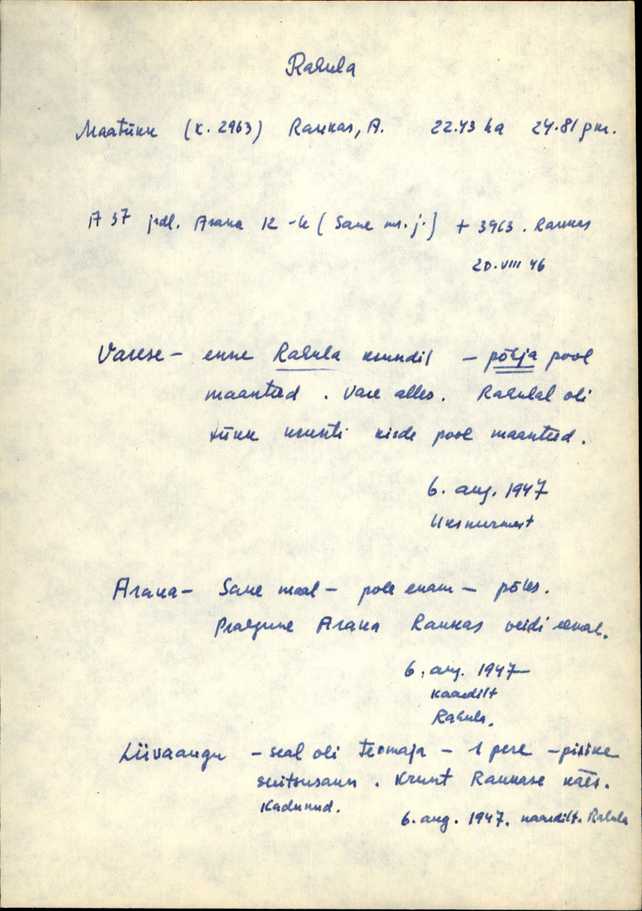 Rahula
Maatükk (k. 2963) Raukas, A. 22.43 ha 24.81 
A 37 Arana 12 -le (Sane ) + 3963. Raukas
20. VIII 46
Varese - enne Rahula krundil - põhja pool
maanteed. Vare alles. Rahulal oli
tükk krunti kirde pool maanteed.
6. aug. 1947
Arana - Sane maal - pole enam - põles.
Praegune Arana Raukas veidi eemal.
6. aug. 1947
kaardilt
Rahula.
Liivaaugu - seal oli teomaja - 1 pere - pisike
suitsusaun. Krunt Raukase käes.
Kadunud.
6. aug. 1947. kaardilt. Rahula